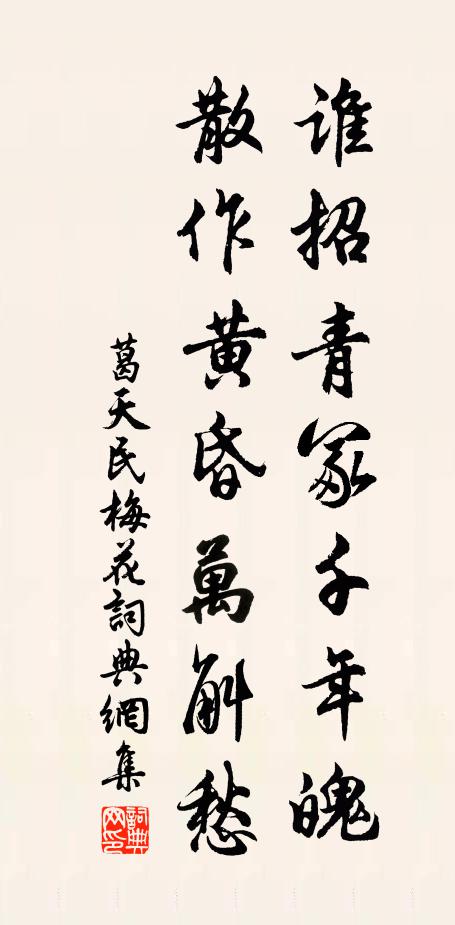 誰招青冢千年魄
散作黃昏萬斛愁
葛天民梅花詞典網集
詞典網印